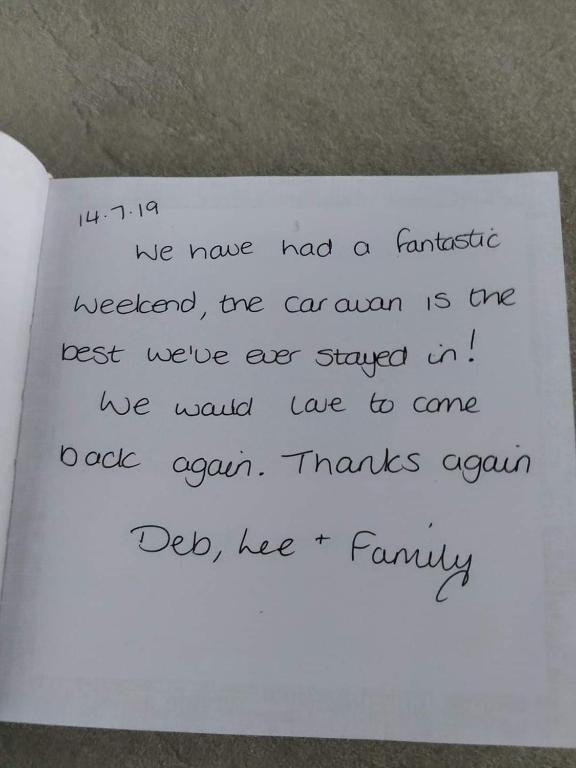 14.7.19
We have had a fantastic
weekend, the caravan is the
best we've ever stayed in!
We would love to come
back again. Thanks again
Deb, Lee + Family